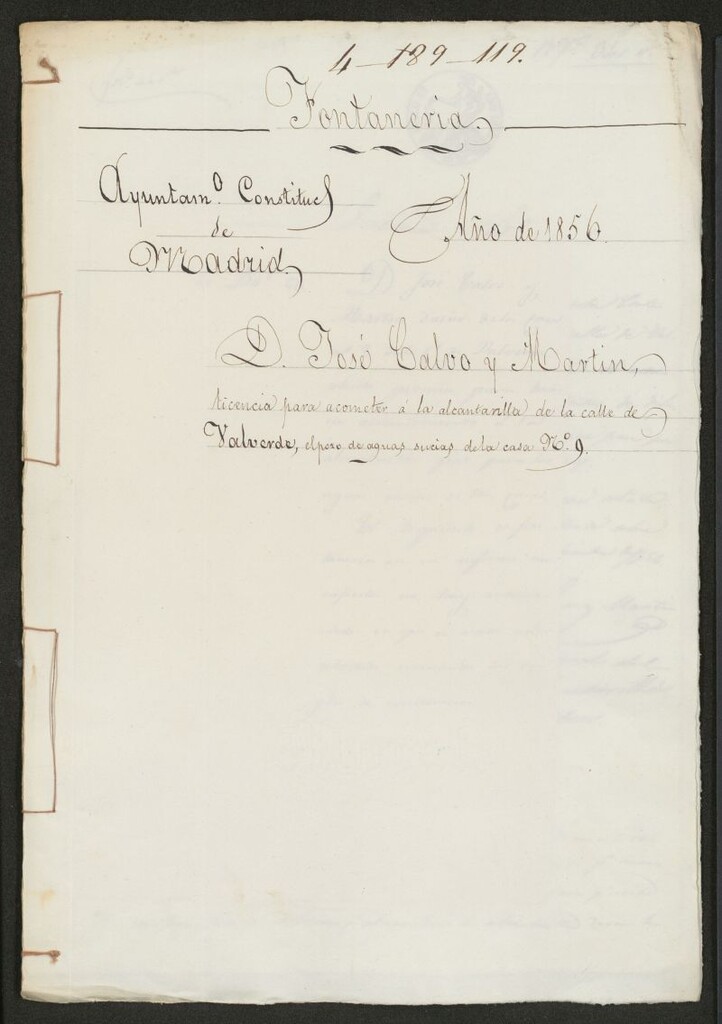 4-189-119.
Fontaneria
Ayuntamº. Constitucl
de
Madrid
Año de 1856.
D. José Calvo y Martin,
licencia para acometer á la alcantarilla de la calle de
Valverde, el pozo de aguas sucias de la casa Nº. 9.